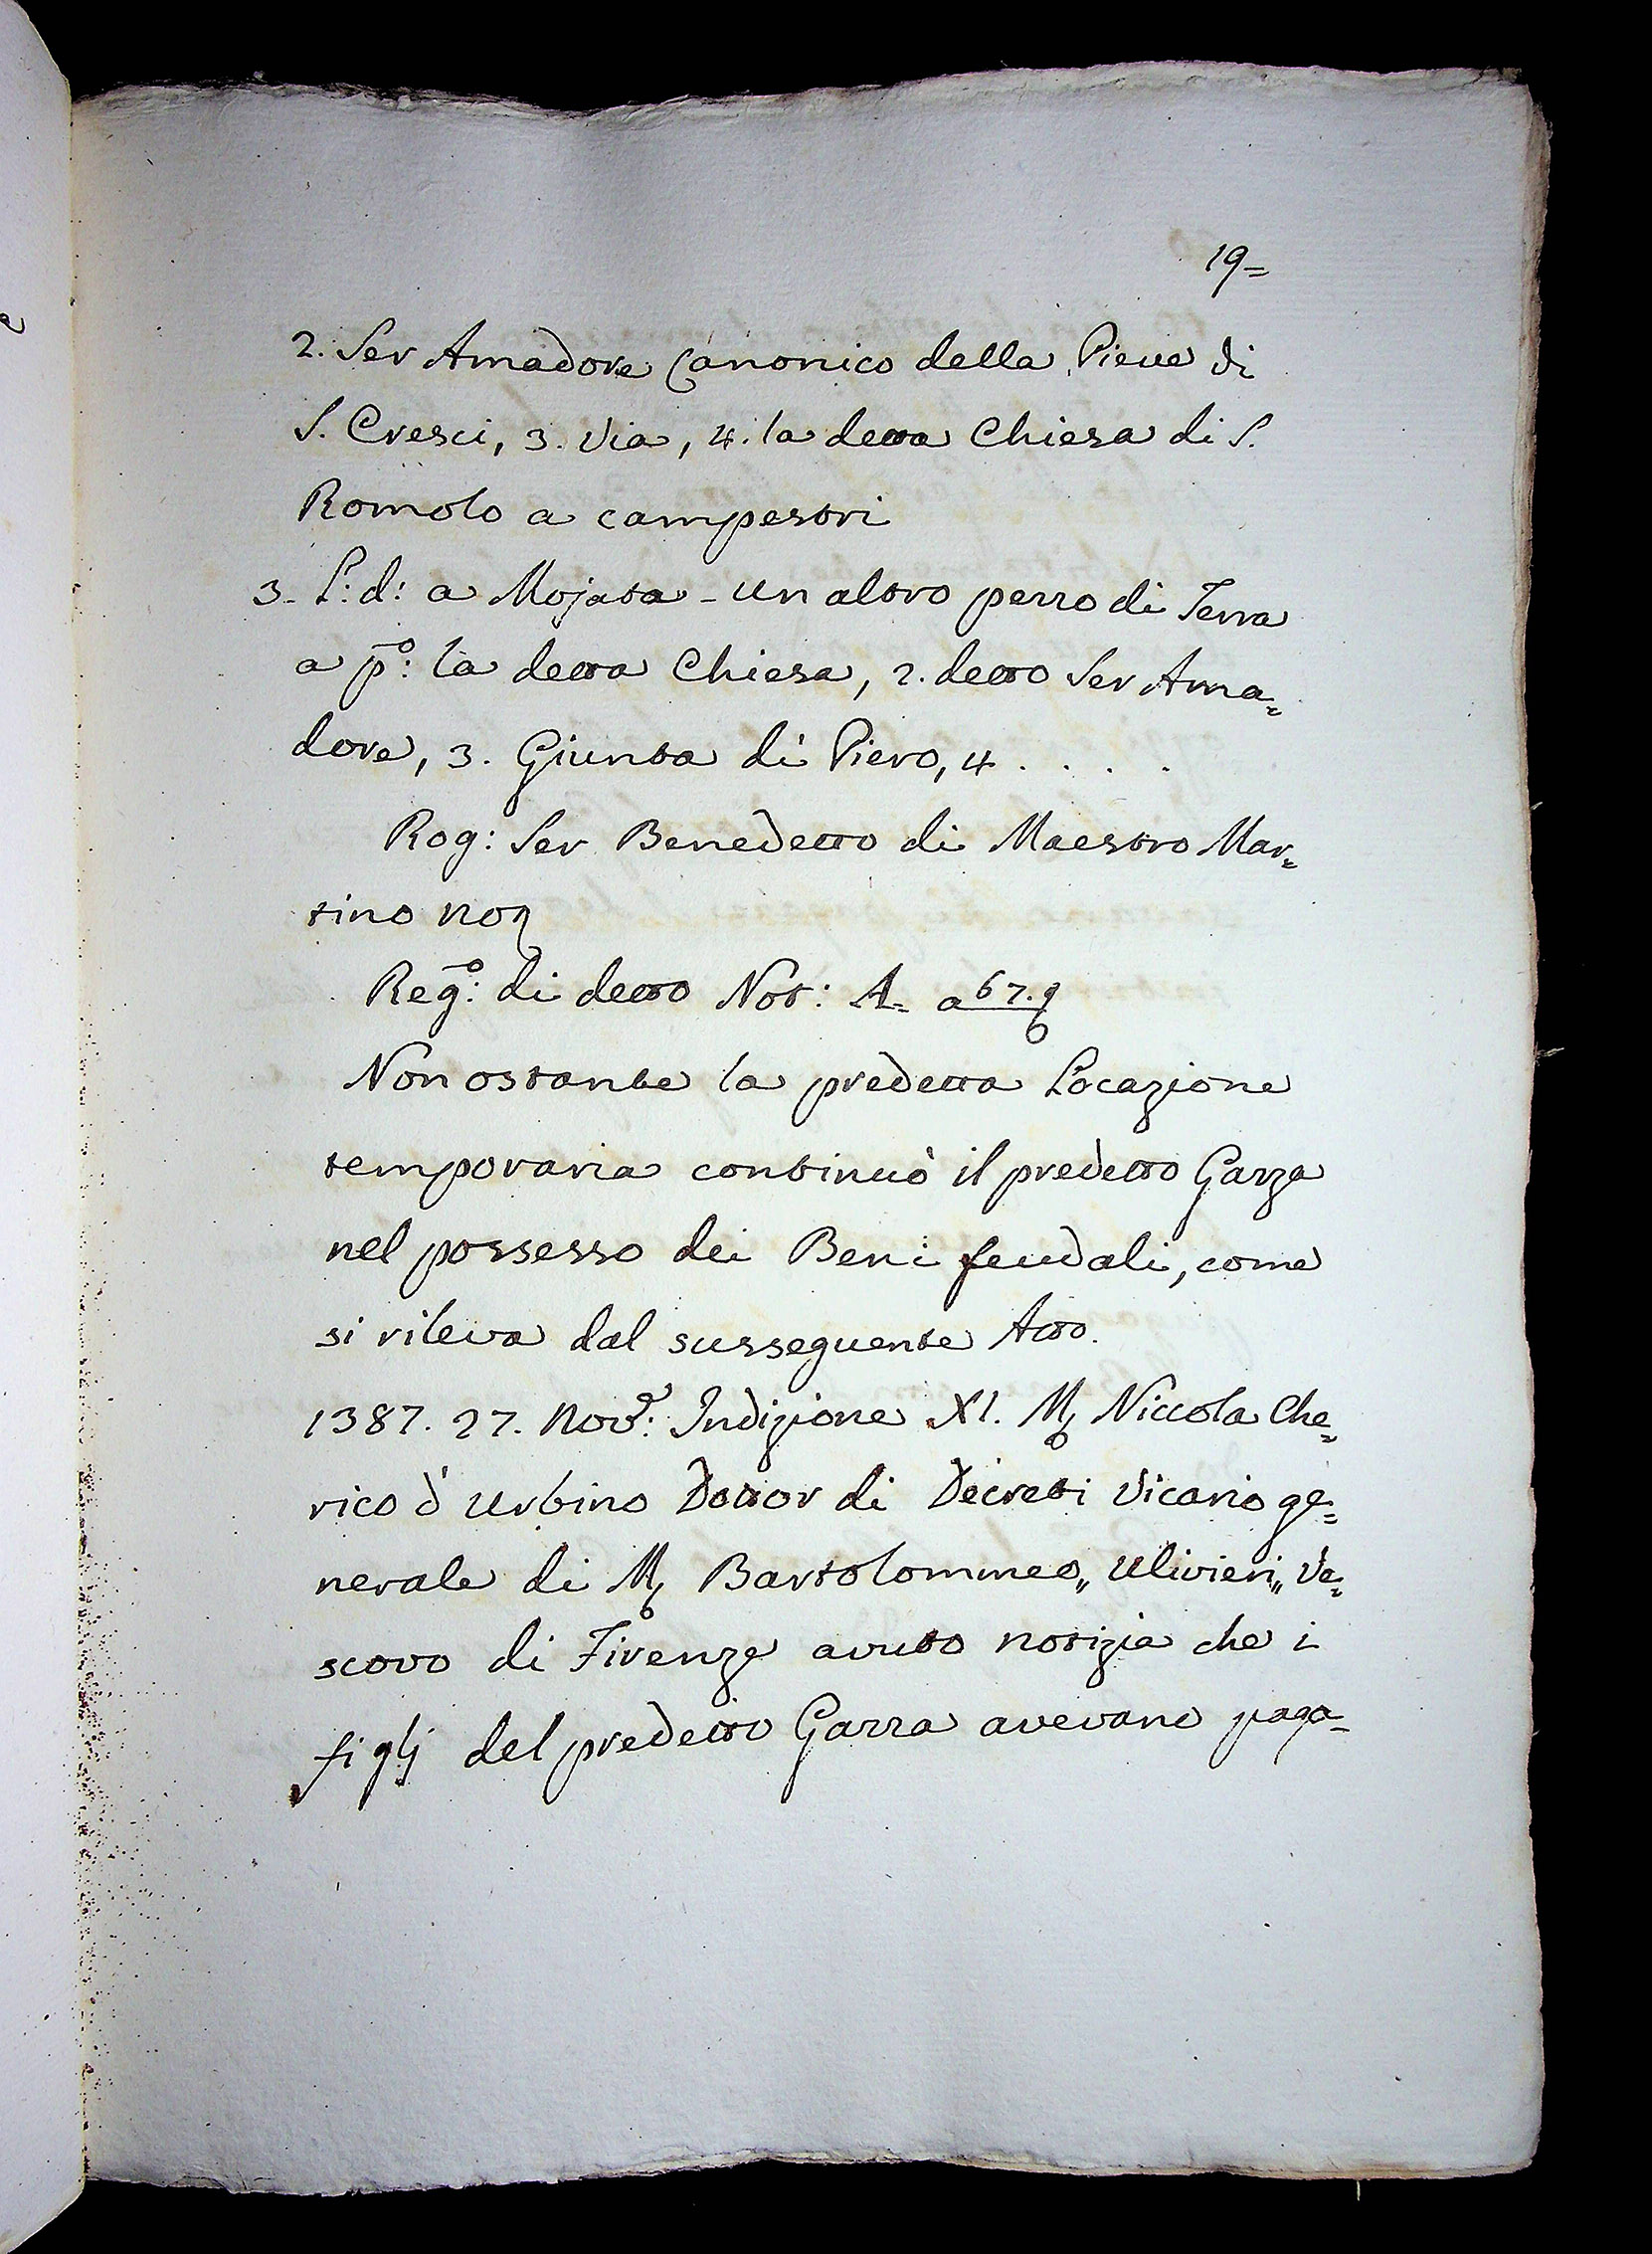 19=
2. Ser Amadore Canonico della Pieve di
S. Cresci, 3. via, 4. la detta Chiesa di S.
Romolo a campestri
3. L: d: a Mojata - un altro pezzo di Terra
a p.º: la detta Chiesa, 2. detto Ser Ama=
dore, 3. Giunta di Piero, 4 . . . .
Rog: Ser Benedetto di Maestro Mar=
tino no
Reg.º: di detto Not: A- a 67.
Non ostante la predetta Locazione
temporaria continuò il predetto Garza
nel possesso dei Beni feudali, come
si rileva dal susseguente Atto.
1387. 27. Nov.e: Indizione XI. M Niccola Che=
rico d'Urbino Dottor di Decreti Vicario ge=
nerale di M Bartolommeo „Ulivieri„ Ve=
scovo di Firenze avuto notizia che i
figlj del predetto Garza avevano paga=